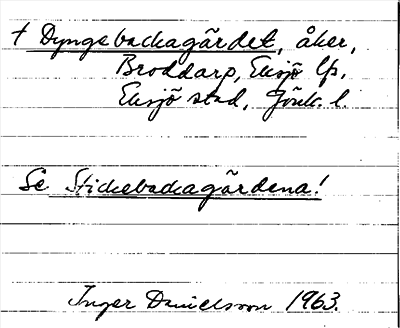 † Dyngebackagärdet, åker,
Broddarp, Eksjö lfs,
Eksjö stad, Jönk. l.
Se Stickebackagärdena!
Inger Danielsson 1963.